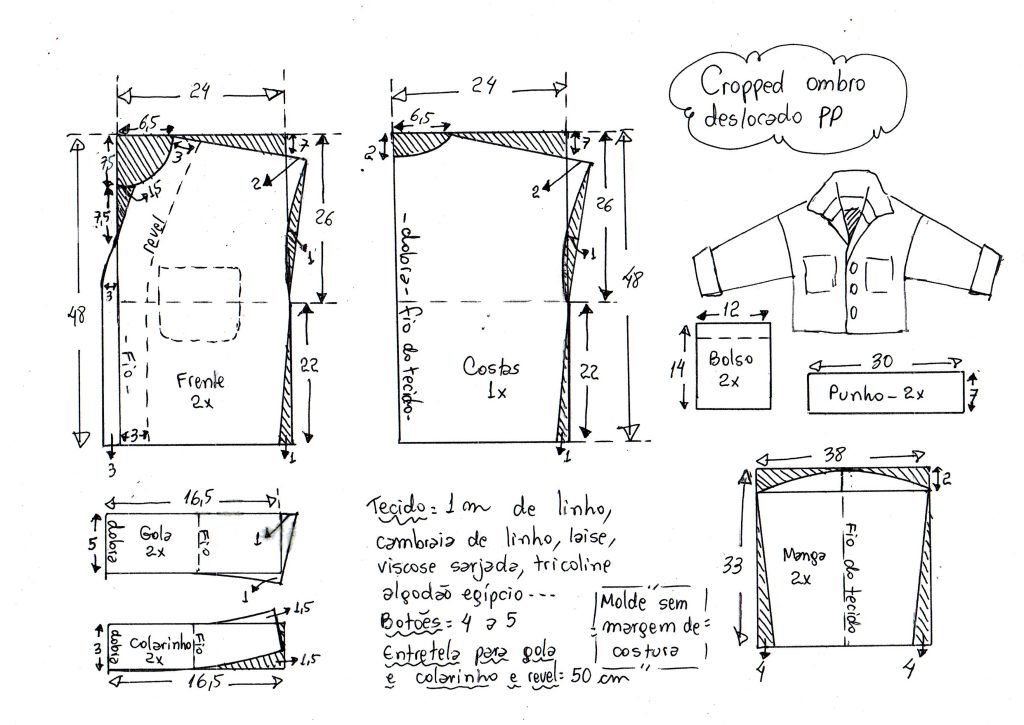 Cropped ombro
deslocado PP
24
6,5
7,5
3
7
1,5
7,5
2
revel
26
1
3
48
Fio
22
Frente
2x
3
3
1
24
6,5
2
7
2
26
1
48
- dobra - fio do tecido -
Costas
1x
22
1
12
14
Bolso
2x
30
Punho - 2x
7
38
2
33
Manga
2x
Fio do tecido
4
4
16,5
5
dobra
Gola
2x
Fio
1
1
1,5
3
dobra
Colarinho
2x
Fio
1,5
16,5
Tecido = 1 m de linho,
cambraia de linho, laise,
viscose sarjada, tricoline
algodão egípcio ---
Botões = 4 a 5
Entretela para gola
e colarinho e revel = 50 cm
Molde sem
margem de
costura